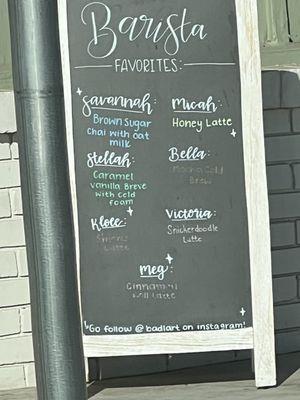 Barista
FAVORITES:
Savannah:
Brown Sugar
Chai with oat
milk
Micah:
Honey Latte
Stellah:
Caramel
Vanilla Breve
with cold
foam
Bella:
Mocha Cold
Brew
Kloee:
Latte
Victoria:
Snickerdoodle
Latte
meg:
Cinnamon
Roll Latte
Go follow @ badlart on instagram!